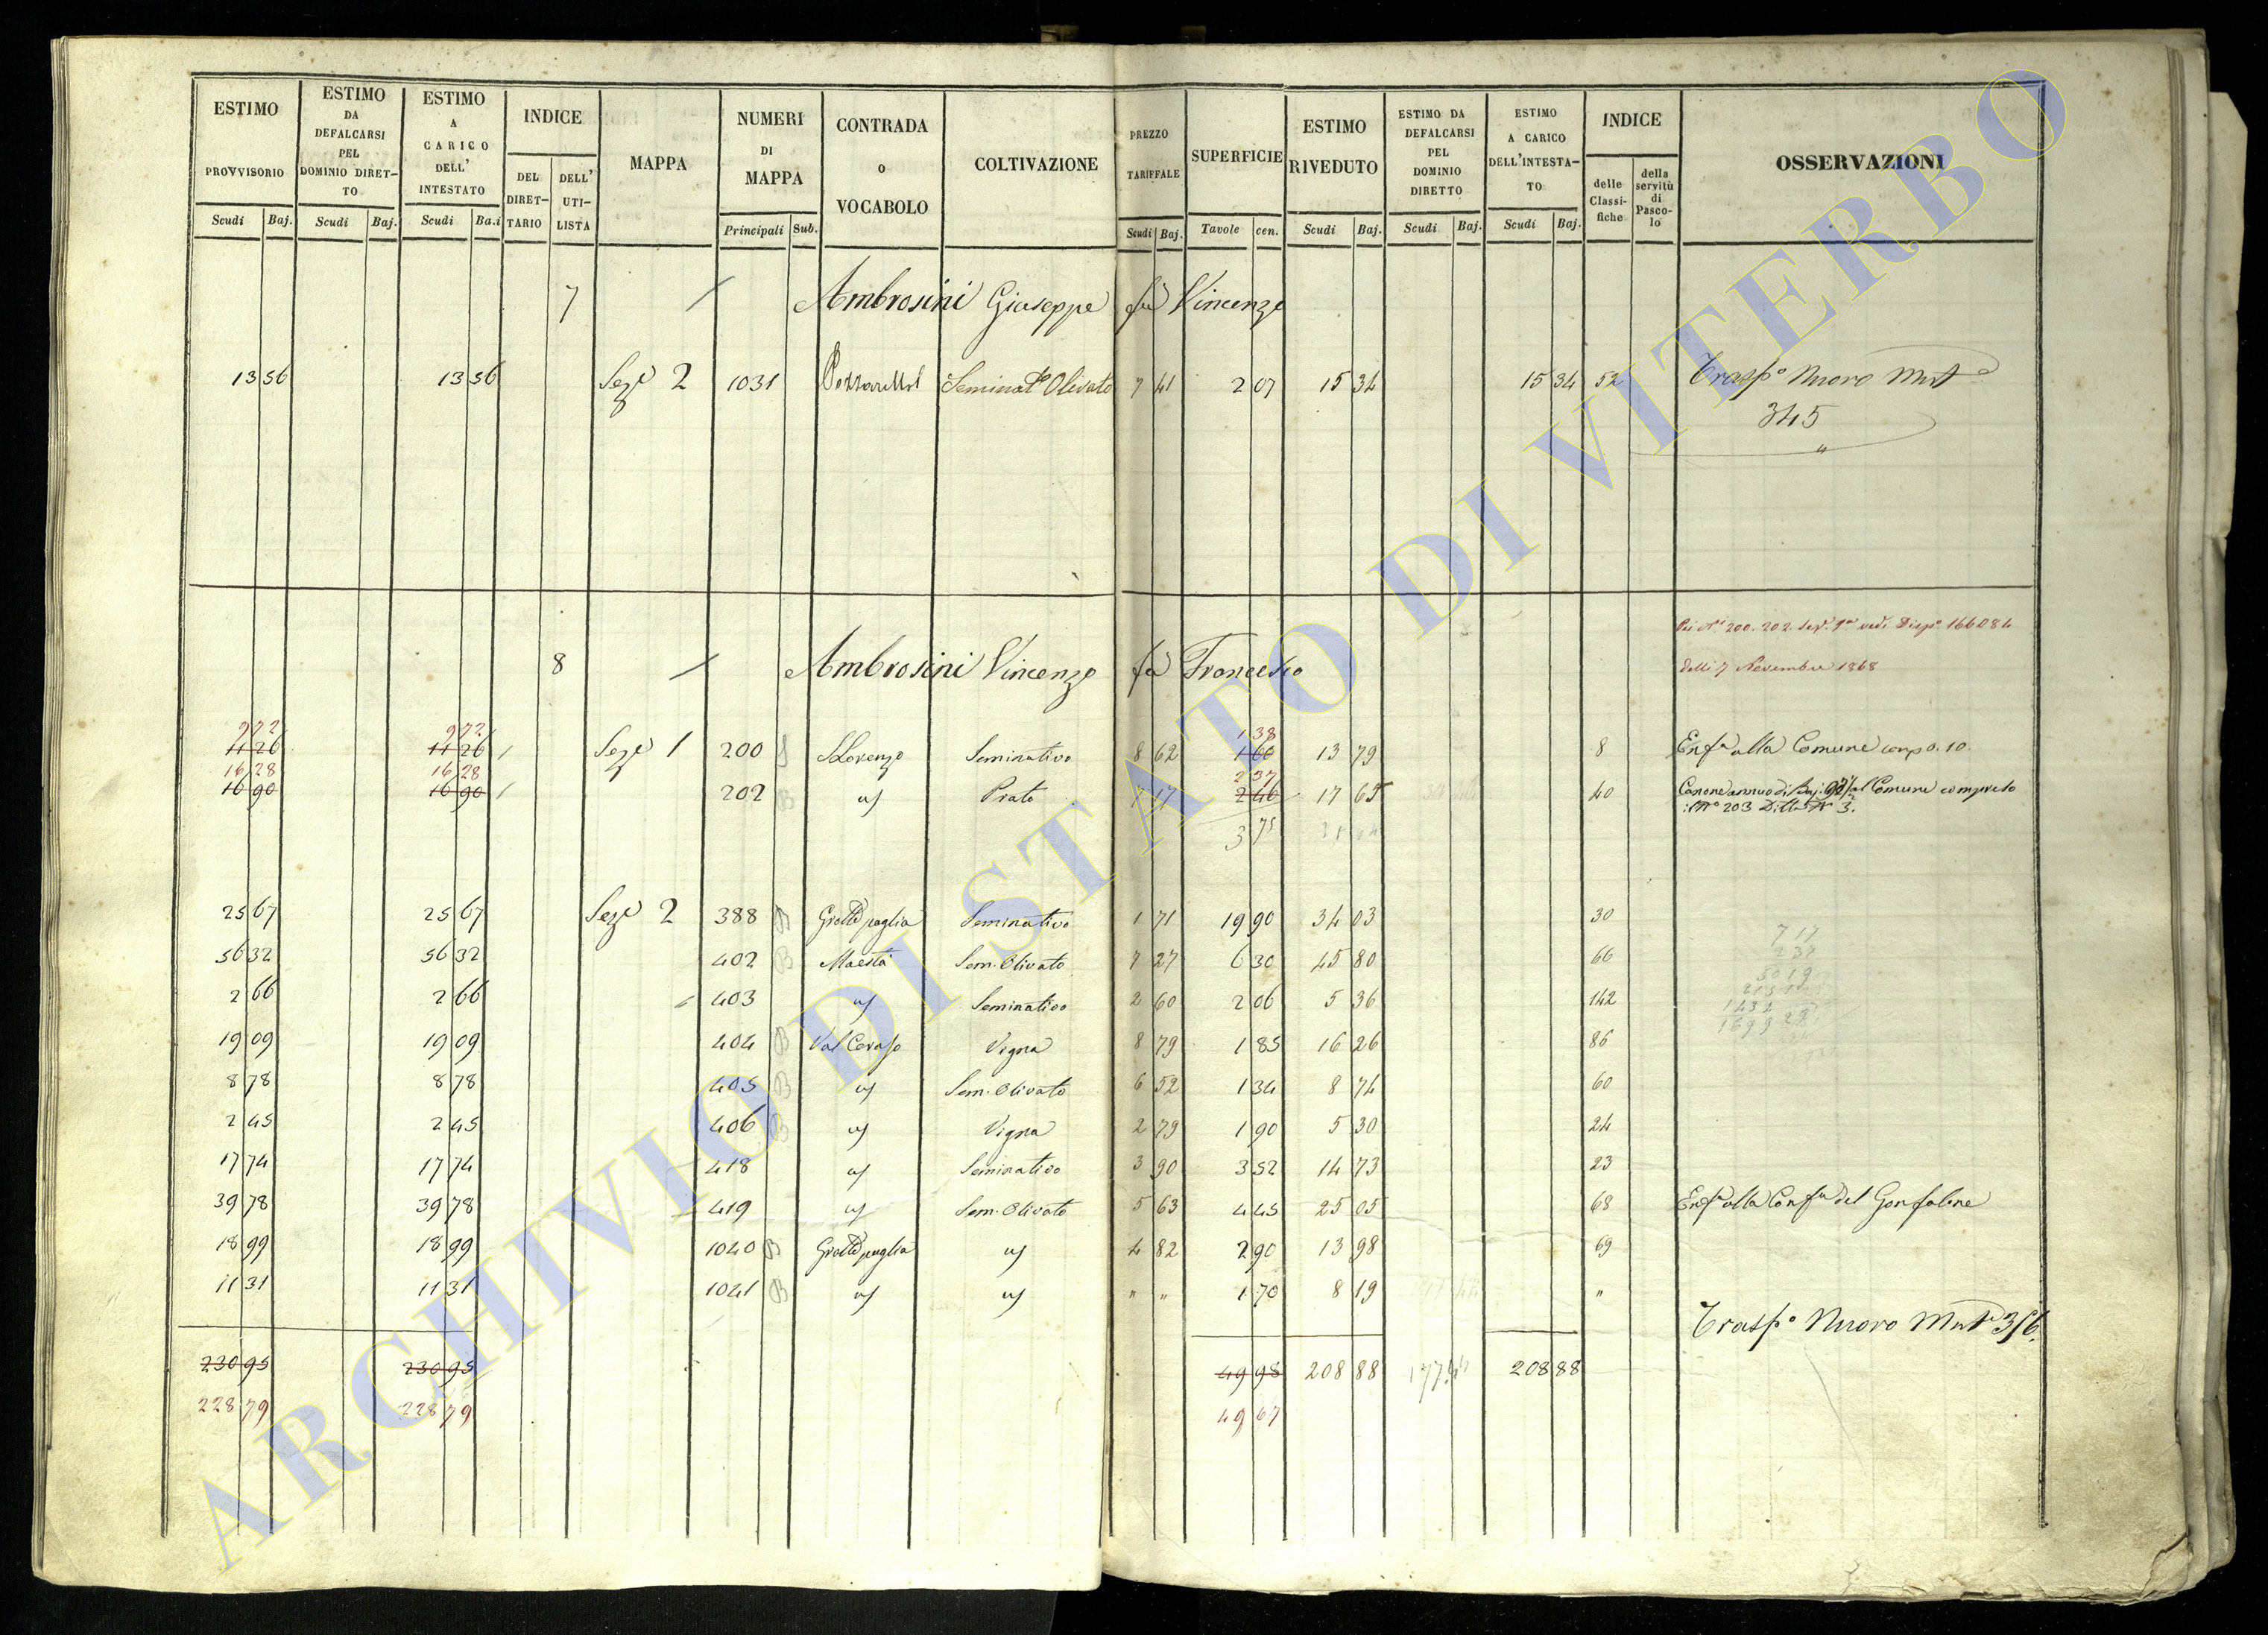 ESTIMO PROVVISORIO Scudi Baj.
ESTIMO DA DEFALCARSI PEL DOMINIO DIRET-TO Scudi Baj.
ESTIMO A CARICO DELL' INTESTATO Scudi Ba.i
INDICE DEL DIRET-TARIO DELL' UTI-LISTA
MAPPA
NUMERI DI MAPPA Principali Sub.
CONTRADA o VOCABOLO
COLTIVAZIONE
PREZZO TARIFFALE Scudi Baj.
SUPERFICIE Tavole cen.
ESTIMO RIVEDUTO Scudi Baj.
ESTIMO DA DEFALCARSI PEL DOMINIO DIRETTO Scudi Baj.
ESTIMO A CARICO DELL'INTESTA-TO Scudi Baj.
INDICE delle Classi-fiche della servitù di Pasco-lo
OSSERVAZIONI
7 Ambrosini Giuseppe fù Vincenzo
13 56 13 56 Seze 2 1031 Seminato Olivato 7 41 2 07 15 34 15 34 52 Traspo Nuovo Mut
345
Pei Ni 200. 202. Disp. 166084
8 Ambrosini Vincenzo fù Francesco delli 7 Novembre 1868
9 72 9 72 1 38
11 26 11 26 Seze 1 200 S.Lorenzo Seminativo 8 62 1 60 13 79 8 Enfa alla Comune
16 28 16 28 2 37
16 90 16 90 202 B Prato 7 17 2 46 17 65 40 Canone annuo di Baj. al Comune compreso
No 203 Ditta No 3.
3 75
25 67 25 67 Seze 2 388 B Grotte paglia Seminativo 1 71 19 90 34 03 30
56 32 56 32 402 B Maestà Sem. Olivato 7 27 6 30 45 80 66
2 66 2 66 403 Seminativo 2 60 2 06 5 36 142
19 09 19 09 404 B Val Ceraso Vigna 8 79 1 85 16 26 86
8 78 8 78 405 B Sem. Olivato 6 52 1 34 8 74 60
2 45 2 45 406 B Vigna 2 79 1 90 5 30 24
17 74 17 74 418 Seminativo 3 90 3 52 14 73 23
39 78 39 78 419 Sem. Olivato 5 63 4 45 25 05 68 Enfa alla Confa del Gonfalone
18 99 18 99 1040 B Grotte paglia 4 82 2 90 13 98 69
11 31 11 31 1041 B " " 1 70 8 19 "
Traspo Nuovo Mut
230 95 230 95 49 98 208 88 208 88
228 79 228 79 49 67
ARCHIVIO DI STATO DI VITERBO